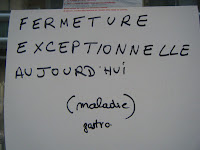 FERMETURE
EXCEPTIONNELLE
AUJOURD'HUI
(maladie)
gastro